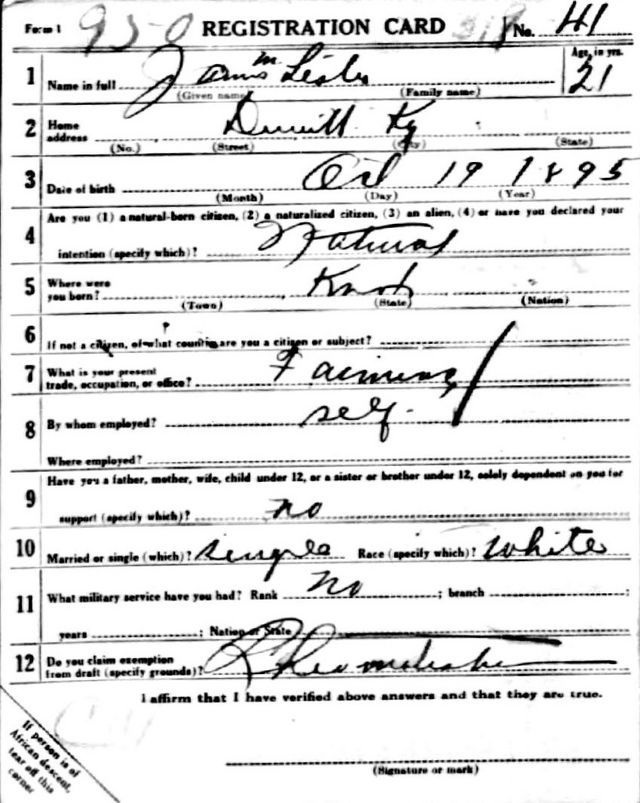 Form 1 950 REGISTRATION CARD 318 No. 41
1 Name in full James M Lesly Age, in yrs. 21
(Given name) (Family name)
2 Home address Ky
(No.) (Street) (City) (State)
3 Date of birth Oct 19 1895
(Month) (Day) (Year)
4 Are you (1) a natural-born citizen, (2) a naturalized citizen, (3) an alien, (4) or have you declared your
intention (specify which)? Natural
5 Where were you born? Knob
(Town) (State) (Nation)
6 If not a citizen, of what country are you a citizen or subject?
7 What is your present trade, occupation, or office? Farming
8 By whom employed? self.
Where employed?
9 Have you a father, mother, wife, child under 12, or a sister or brother under 12, solely dependent on you for
support (specify which)? no
10 Married or single (which)? single Race (specify which)? White
11 What military service have you had? Rank No ; branch ;
years ; Nation or State
12 Do you claim exemption from draft (specify grounds)?
I affirm that I have verified above answers and that they are true.
If person is of
African descent,
tear off this
corner.
(Signature or mark)